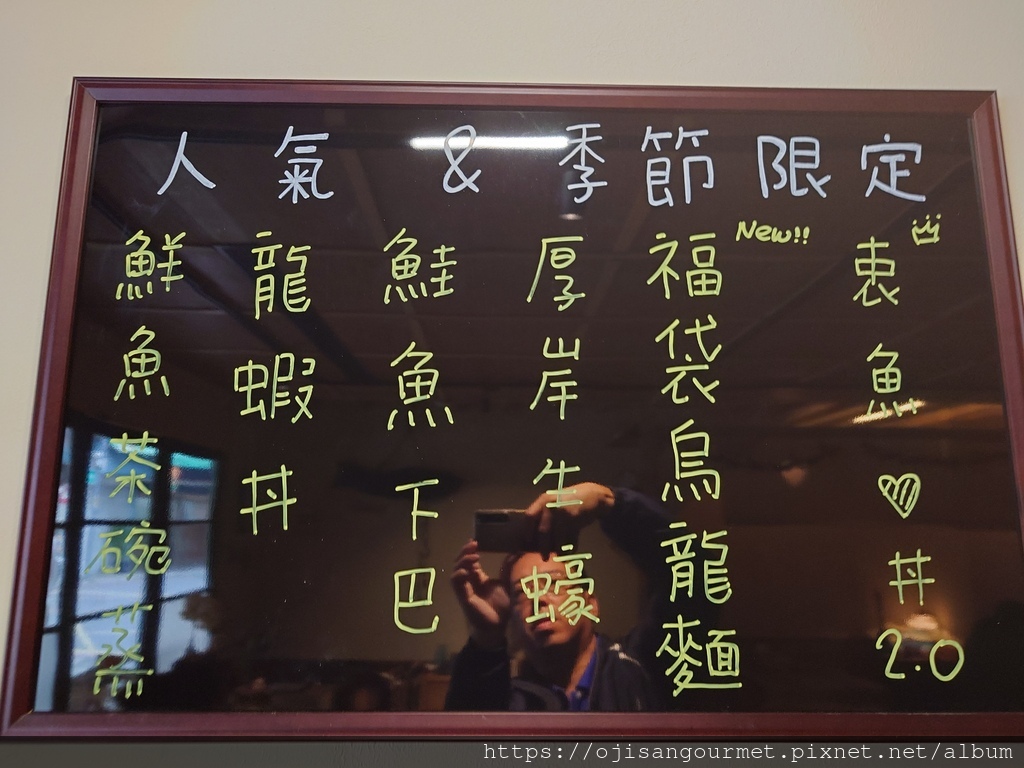 人氣 & 季節限定
衷魚♡丼2.0
New!!
福袋烏龍麵
厚岸生蠔
鮭魚下巴
龍蝦丼
鮮魚茶碗蒸
https://ojisangourmet.pixnet.net/album